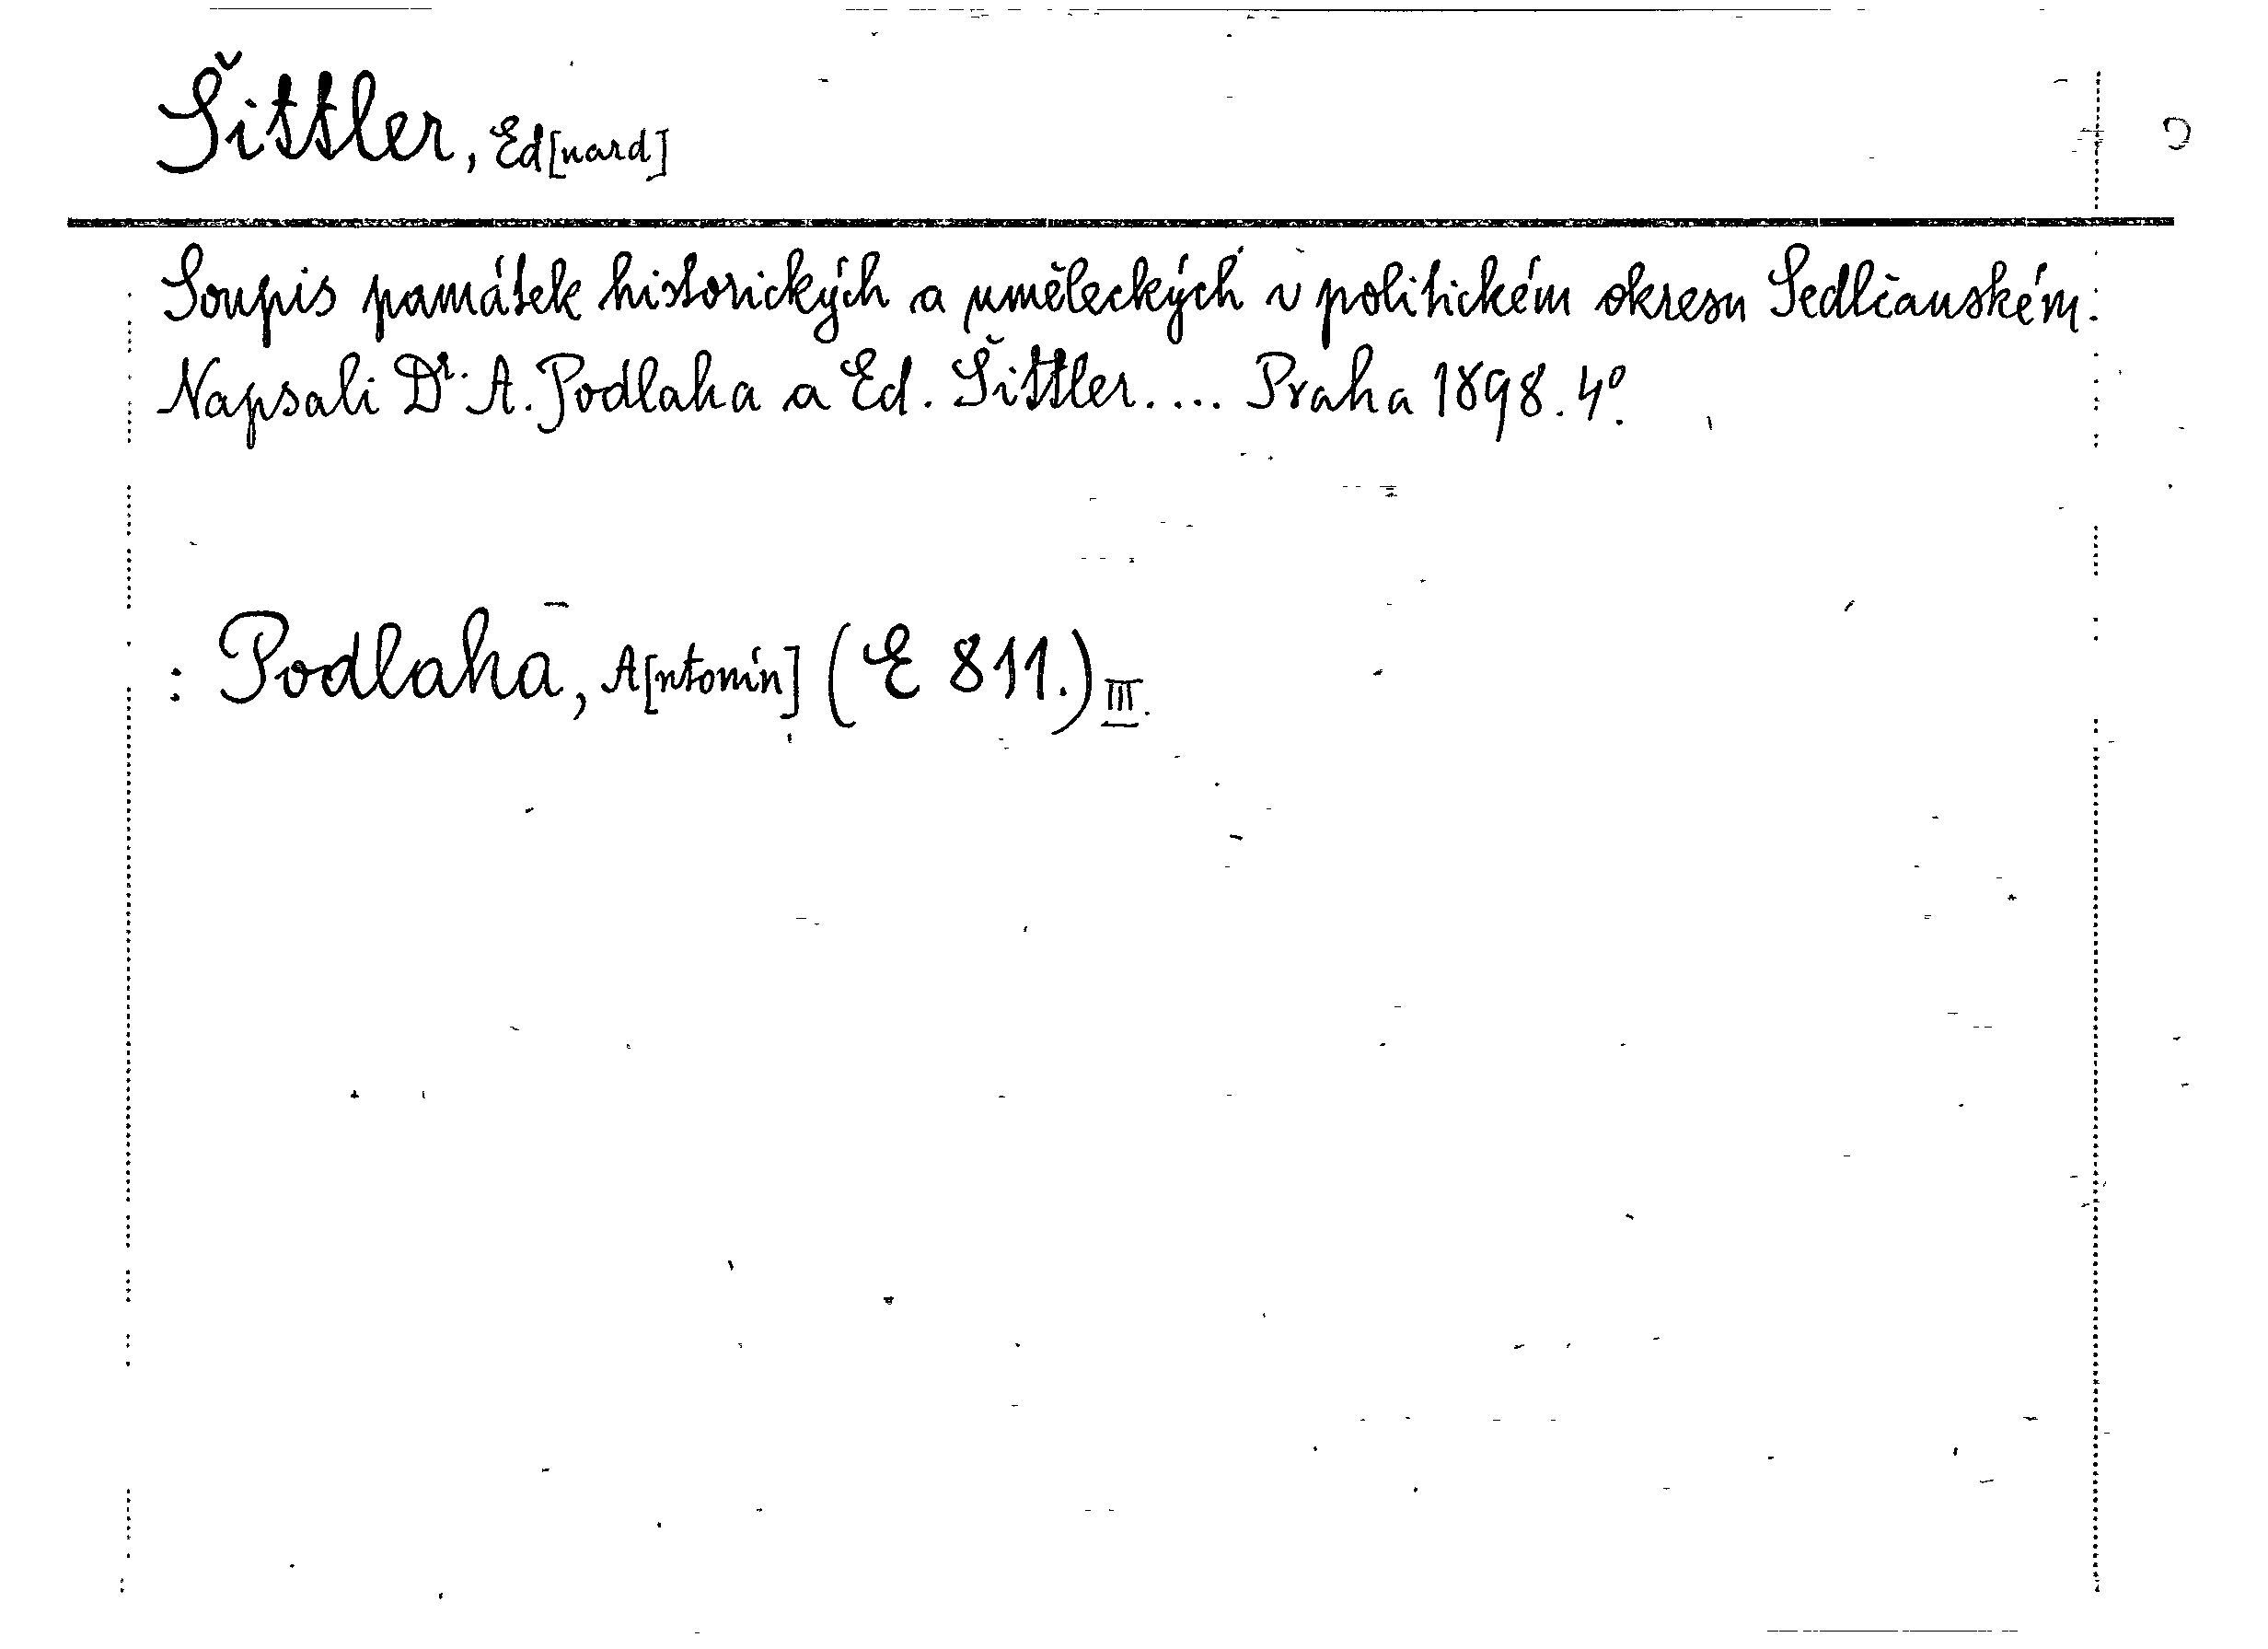 Šittler, Ed[uard]
Soupis památek historických a uměleckých v politickém okresu Sedlčanském.
Napsali Dr. A. Podlaha a Ed. Šittler.... Praha 1898. 4°.
: Podlaha, A[ntonín] (E 811.) III.